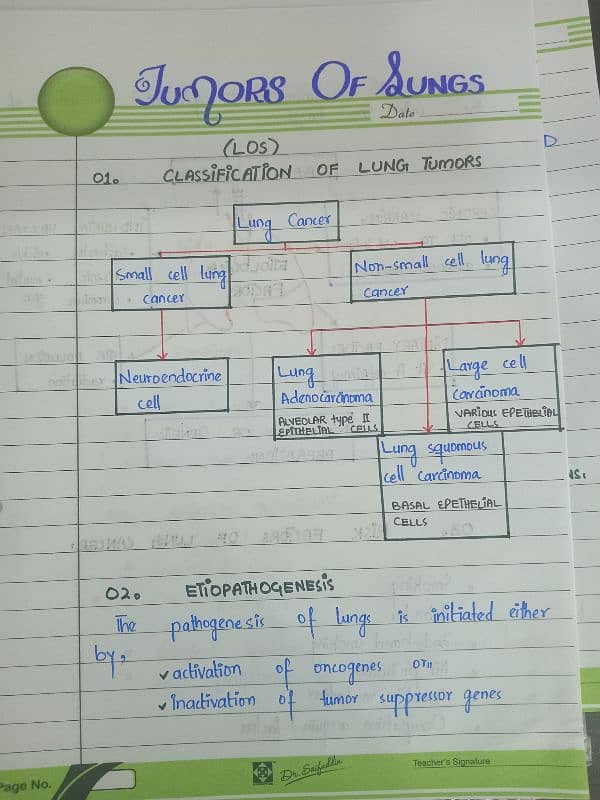 Tumors Of Lungs
Date
(LOS)
01. CLASSIFICATION OF LUNG TUMORS
Lung Cancer
Small cell lung
cancer
Non-small cell lung
cancer
Neuroendocrine
cell
Lung
Adenocarcinoma
ALVEOLAR type II
EPITHELIAL CELLS
Large cell
carcinoma
VARIOUS EPETHELIAL
CELLS
Lung squomous
cell carcinoma
BASAL EPETHELIAL
CELLS
02. ETIOPATHOGENESIS
The pathogenesis of lungs is initiated either
by,
✓ activation of oncogenes or
✓ inactivation of tumor suppressor genes
Page No.
Dr. Saifuddin
Teacher's Signature
D
NS.